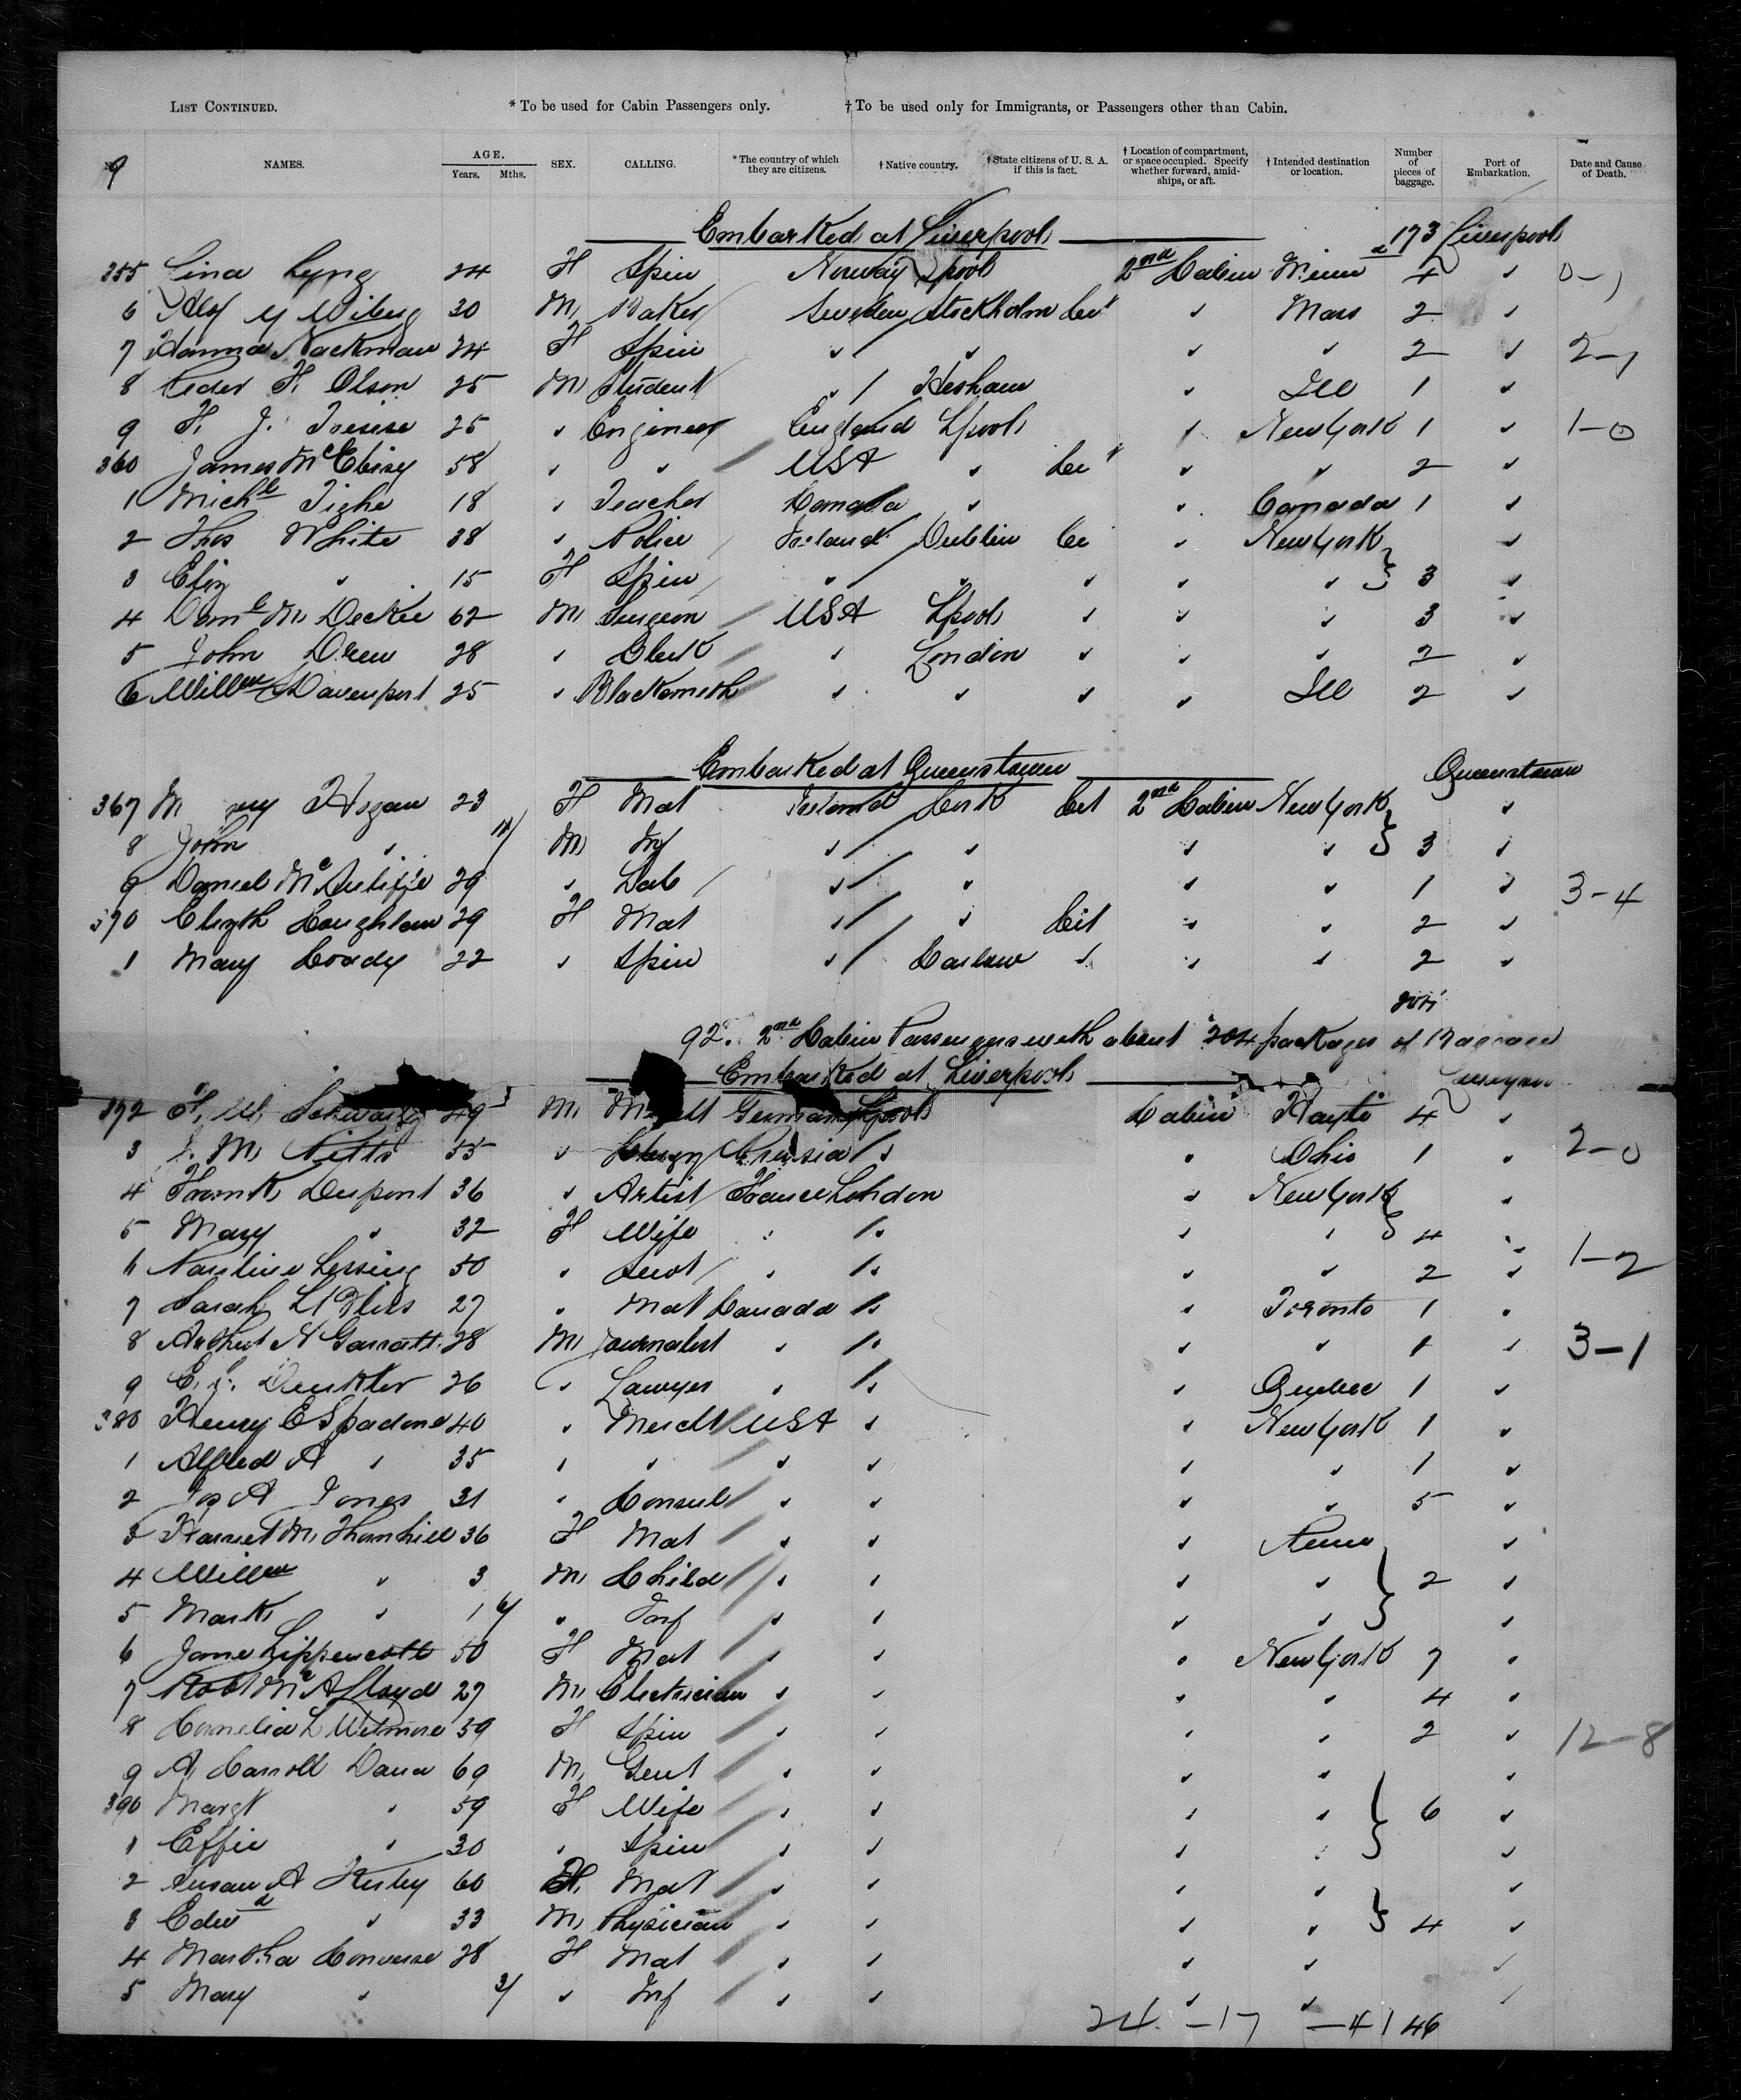 LIST CONTINUED. * To be used for Cabin Passengers only. † To be used only for Immigrants, or Passengers other than Cabin.
9 NAMES. AGE. Years. Mths. SEX. CALLING. * The country of which they are citizens. † Native country. † State citizens of U. S. A. if this is fact. † Location of compartment, or space occupied. Specify whether forward, amidships, or aft. † Intended destination or location. Number of pieces of baggage. Port of Embarkation. Date and Cause of Death.
Embarked at Liverpool 173 Liverpool
355 Lina Lyng 24 F Spin Norway Lpool 2nd Cabin Minn 4 " 0-1
6 Alf Wiberg 30 M Baker Sweden Stockholm Cit " Mass 2 "
7 Hanna Nackman 24 F Spin " " " " 2 " 2-1
8 Peder H. Olson 25 M Student " " Ill 1 "
9 H. J. 25 " Engineer England Lpool " New York 1 " 1-0
360 James 58 " " USA " Cit " " 2 "
1 Michl Tighe 18 " Teacher Canada " " Canada 1 "
2 Thos White 38 " Police Ireland Dublin Cit " New York "
3 Eliz " 15 F Spin " " " " " 3 "
4 M. 62 M Surgeon USA Lpool " " " 3 "
5 John Drew 28 " Clerk " London " " " 2 "
6 Willm Davenport 25 " Blacksmith " " " " Ill 2 "
Embarked at Queenstown Queenstown
367 Mary Hogan 23 F Mat Ireland Cork Cit 2nd Cabin New York "
8 John " M Inf " " " " 3 "
9 Daniel McAuliffe 29 " Lab " " " " 1 " 3-4
370 Elizth Coughlan 29 F Mat " " Cit " " 2 "
1 Mary Coady 22 " Spin " Carlow " " " 2 "
204
92. 2nd Cabin Passengers with about 204 packages of Baggage
Embarked at Liverpool Liverpool
372 49 M Germany Lpool Cabin Hayti 4 "
3 M. 55 " Clergy " " Ohio 1 " 2-0
4 Frank Dupont 36 " Artist France London " New York "
5 Mary " 32 F Wife " " " " 4 "
6 Pauline Lessing 50 " Servt " " " " 2 " 1-2
7 Sarah 27 " Mat Canada " " Toronto 1 "
8 Arthur N Garratt 28 M Journalist " " " " 1 " 3-1
9 26 " Lawyer " " " Quebec 1 "
380 Henry E Spadone 40 " Merch USA " " New York 1 "
1 Alfred A " 35 " " " " " " 1 "
2 Jos A Jones 31 " Consul " " " " 5 "
3 Harriet M. Thornhill 36 F Mat " " " Penn "
4 Willm " 3 M Child " " " " 2 "
5 Mark " 1 6/ " Inf " " " " "
6 Jane Lippencott 50 F Mat " " " New York 7 "
7 Robt McA Lloyd 27 M Electrician " " " " 4 "
8 Cornelia L Wetmore 39 F Spin " " " " 2 " 12-8
9 A. Carroll Dana 69 M Gent " " " " "
390 Margt " 59 F Wife " " " " 6 "
1 Effie " 30 " Spin " " " " "
2 Susan A 60 F Mat " " " " "
3 Edwd " 33 M Physician " " " " 4 "
4 Martha Converse 28 F Mat " " " " "
5 Mary " 3/ " Inf " " " " "
24 -17 -4 1 46